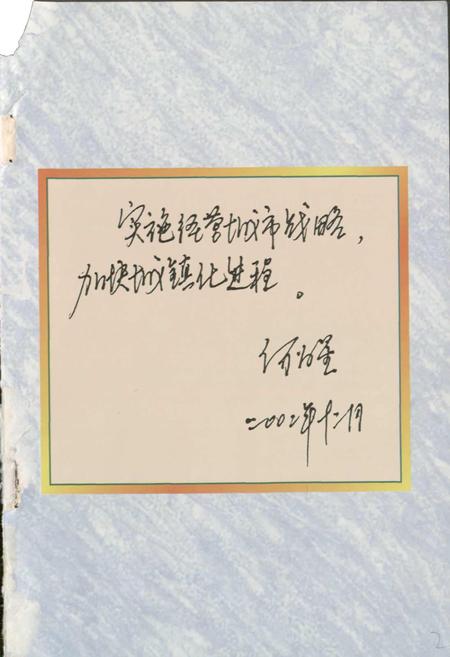 实施经营城市战略，
加快城镇化进程。
二〇〇二年十二月
2